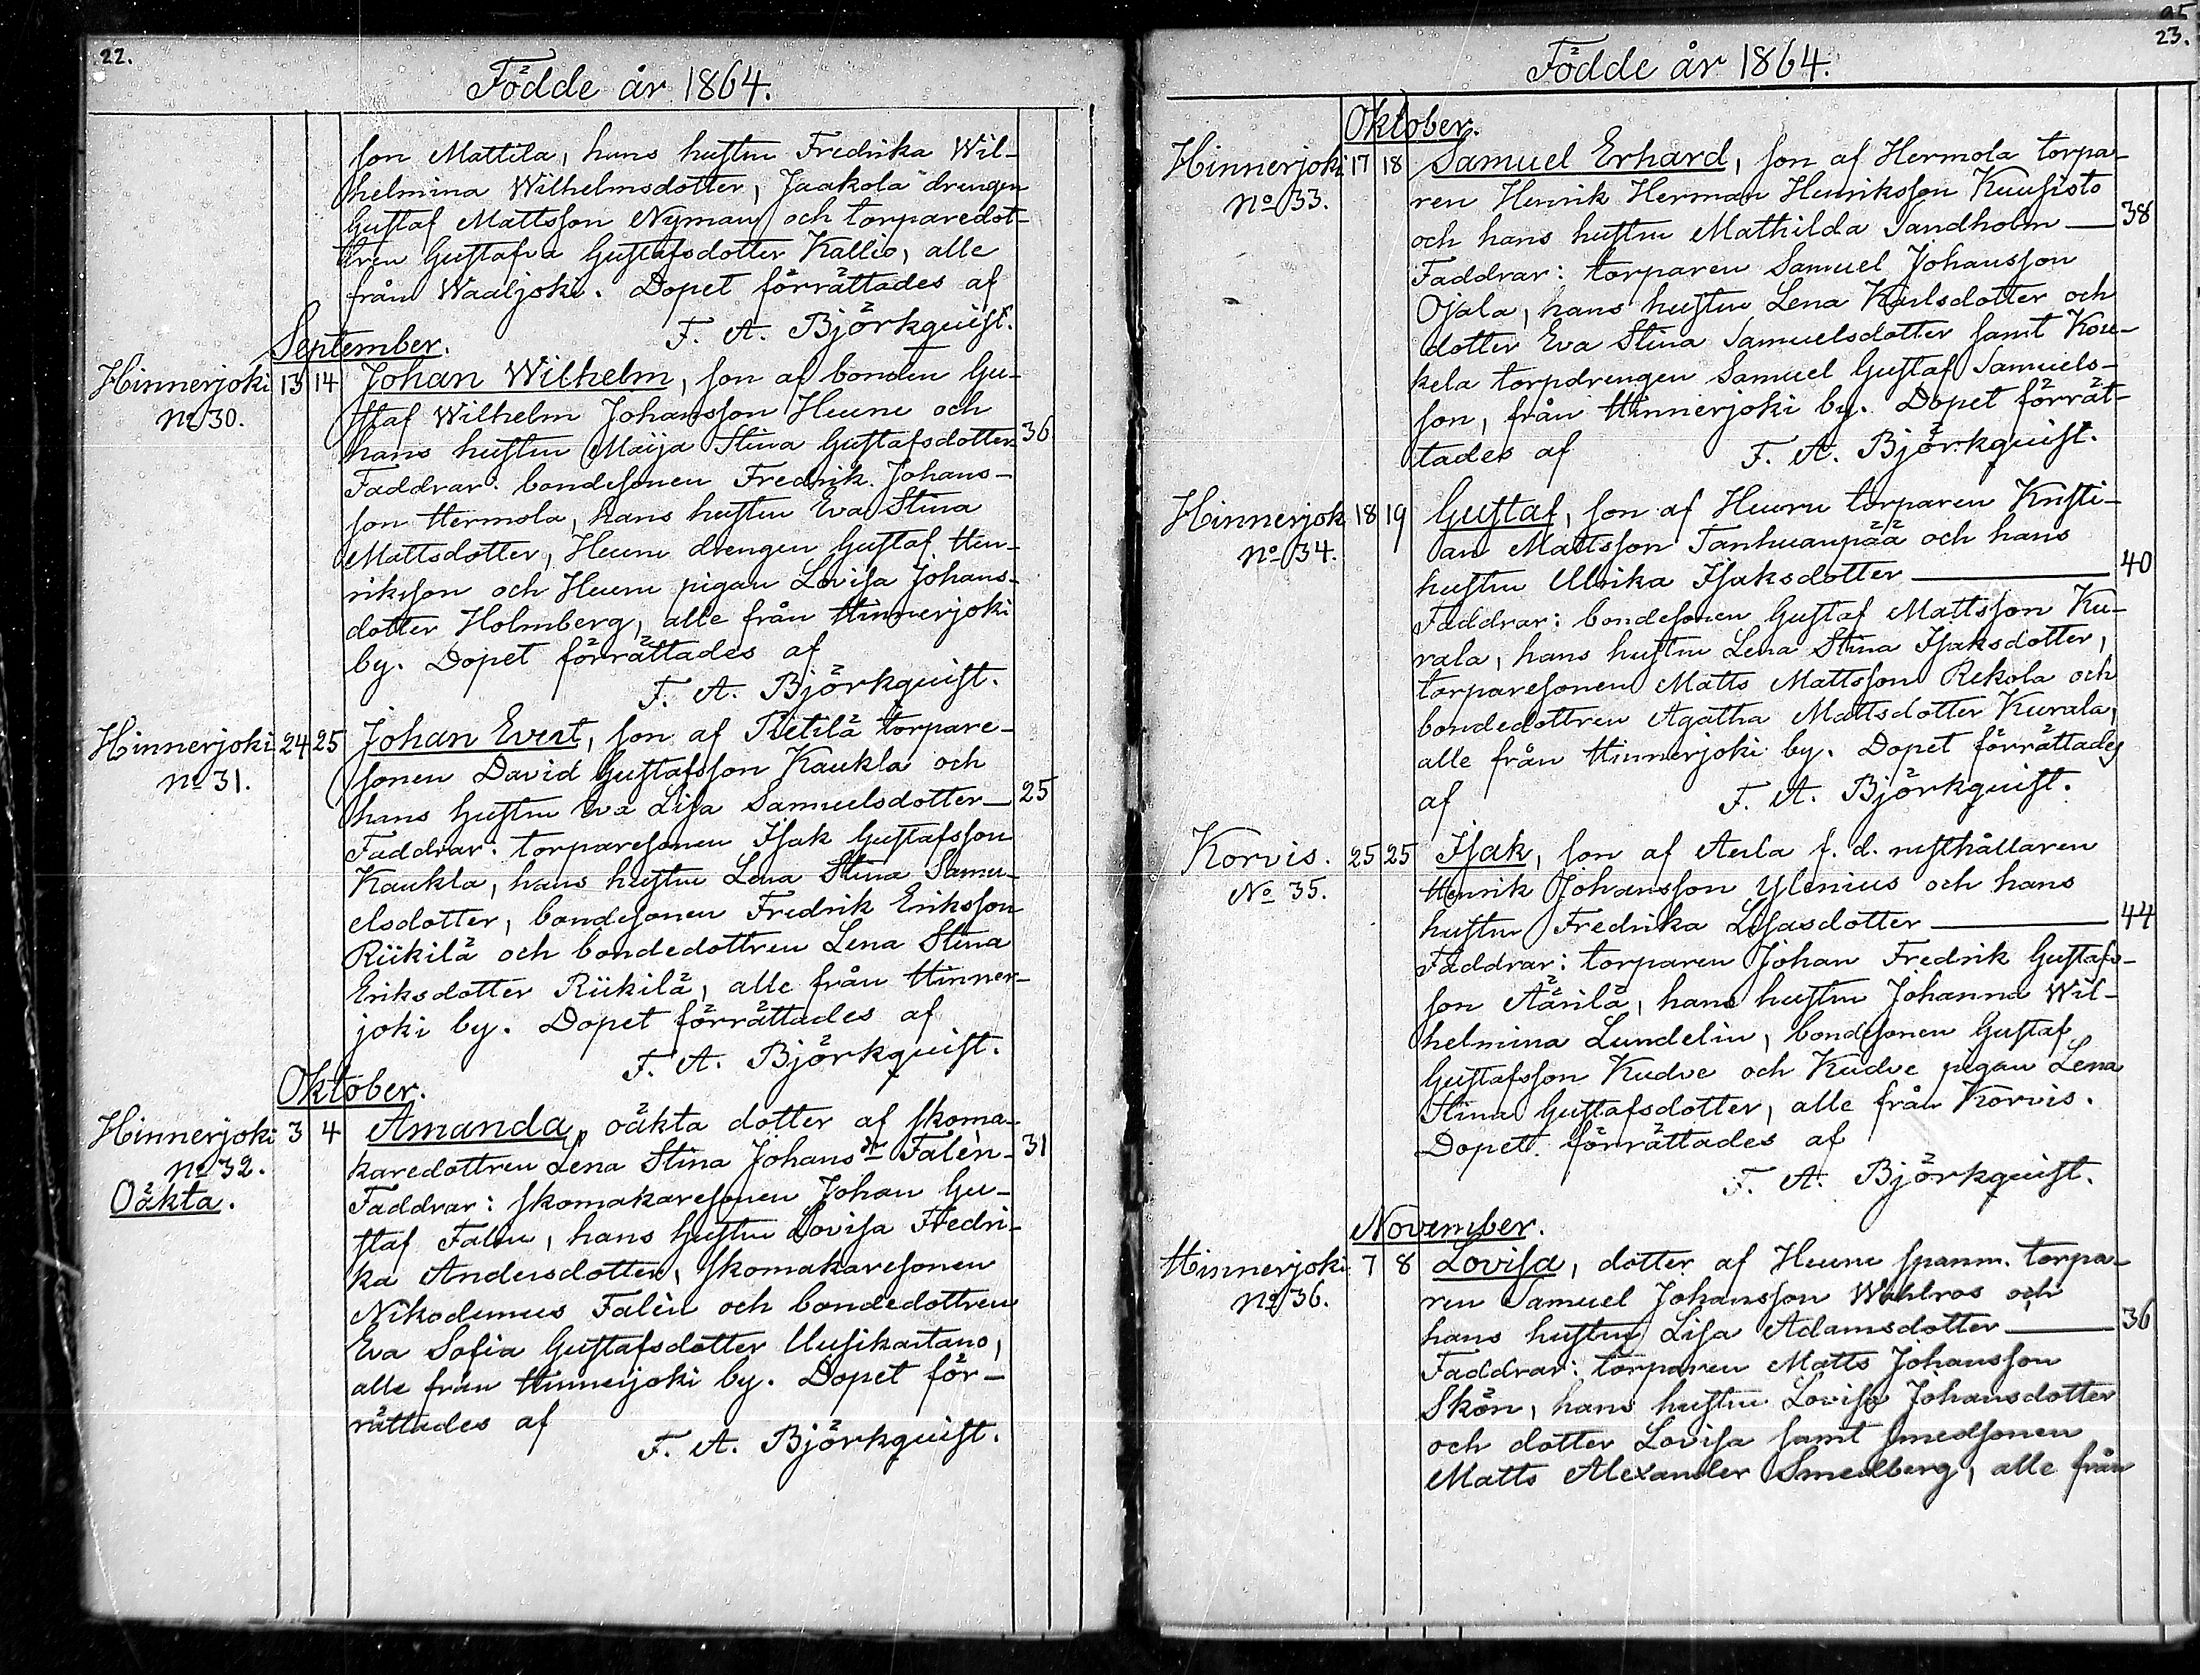 22.
Födde år 1864.
son Mattila, hans hustru Fredrika Wil-
helmina Wilhelmsdotter, Jaakola drengen
Gustaf Mattsson Nyman och torparedot-
tren Gustafva Gustafsdotter Kallio, alle
från Waaljoki. Dopet förrättades af
F. A. Björkquist.
September.
Hinnerjoki 13 14 Johan Wilhelm, son af bonden Gu-
No 30. staf Wilhelm Johansson Heure och
hans hustru Maija Stina Gustafsdotter 36
Faddrar: bondesonen Fredrik Johans-
son Hermola, hans hustru Eva Stina
Mattsdotter, Heure drengen Gustaf Hen-
riksson och Heure pigan Lovisa Johans-
dotter Holmberg, alle från Hinnerjoki
by. Dopet förrättades af
F. A. Björkquist.
Hinnerjoki 24 25 Johan Evert, son af Tietilä torpare-
No 31. sonen David Gustafsson Kaukla och
hans hustru Eva Lisa Samuelsdotter — 25
Faddrar: torparesonen Isak Gustafsson
Kaukla, hans hustru Lena Stina Samu-
elsdotter, bondesonen Fredrik Eriksson
Riikilä och bondedottren Lena Stina
Eriksdotter Riikilä, alle från Hinner-
joki by. Dopet förrättades af
F. A. Björkquist.
Oktober.
Hinnerjoki 3 4 Amanda, oäkta dotter af skoma-
No 32. karedottren Lena Stina Johansdr Falèn - 31
Oäkta. Faddrar: skomakaresonen Johan Gu-
staf Falèn, hans hustru Lovisa Fredri-
ka Andersdotter, skomakaresonen
Nikodemus Falèn och bondedottren
Eva Sofia Gustafsdotter Uusikartano,
alle från Hinnerjoki by. Dopet för-
rättades af
F. A. Björkquist.
95
23.
Födde år 1864.
Oktober.
Hinnerjoki 17 18 Samuel Erhard, son af Hermola torpa-
No 33. ren Henrik Herman Henriksson Kuusisto
och hans hustru Mathilda Sandholm — 38
Faddrar: torparen Samuel Johansson
Ojala, hans hustru Lena Karlsdotter och
dotter Eva Stina Samuelsdotter samt Kou-
kela torpdrengen Samuel Gustaf Samuels-
son, från Hinnerjoki by. Dopet förrät-
tades af F. A. Björkquist.
Hinnerjok 18 19 Gustaf, son af Heuru torparen Kristi-
No 34. an Mattsson Tanhuanpää och hans
hustru Ulrika Isaksdotter — 40
Faddrar: bondesonen Gustaf Mattsson Ku-
rala, hans hustru Lena Stina Isaksdotter,
torparesonen Matts Mattsson Rekola och
bondedottren Agatha Mattsdotter Kurala,
alle från Hinnerjoki by. Dopet förrättades
af F. A. Björkquist.
Korvis. 25 25 Isak, son af Aula f. d. rusthållaren
No 35. Henrik Johansson Ylenius och hans
hustru Fredrika Esasdotter — 44
Faddrar: torparen Johan Fredrik Gustafs-
son Äärilä, hans hustru Johanna Wil-
helmina Lundelin, bondesonen Gustaf
Gustafsson Kudve och Kudve pigan Lena
Stina Gustafsdotter, alle från Korvis.
Dopet förrättades af
F. A. Björkquist.
November.
Hinnerjoki 7 8 Lovisa, dotter af Heure spanm. torpa-
No 36. ren Samuel Johansson Wahlros och
hans hustru Lisa Adamsdotter — 36
Faddrar: torparen Matts Johansson
Skön, hans hustru Lovisa Johansdotter
och dotter Lovisa samt smedsonen
Matts Alexander Smedberg, alle från